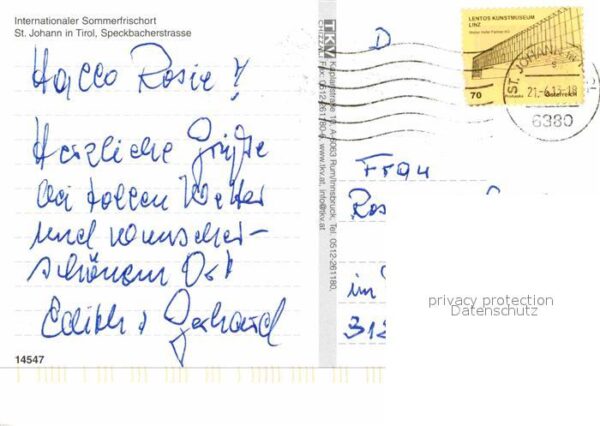 Internationaler Sommerfrischort
St. Johann in Tirol, Speckbacherstrasse
Hallo Rosie!
Herzliche Grüße
bei tollem Wetter
und wunscher-
schönem Ort
Edith + Gerhard
14547
TKV
Rum/Innsbruck, Tel. 0512-261180,
Fax: 0512-261180-6, www.tkv.at, info@tkv.at
D
LENTOS KUNSTMUSEUM
LINZ
70
Österreich
ST. JOHANN
6380
Frau
Ros
im
312
privacy protection
Datenschutz